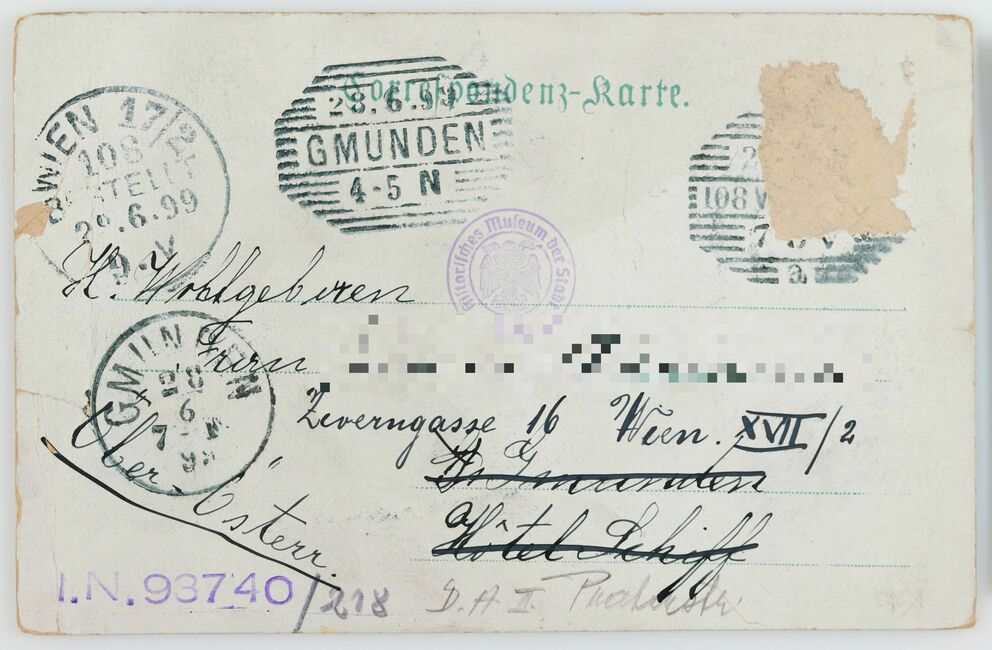 Correspondenz-Karte.
WIEN 17/2
108
BESTELLT
29.6.99
9.V
28.6.99
GMUNDEN
4-5 N
108 W
7 8 V
a
Historisches Museum der Stadt
H. Wohlgeboren
Herrn
Zeverngasse 16 Wien. XVII/2
GMUNDEN
28
6
7
In Gmunden
Hôtel Schiff
Ober-Österr.
I.N. 93740/218
D.A II. Praterstr.